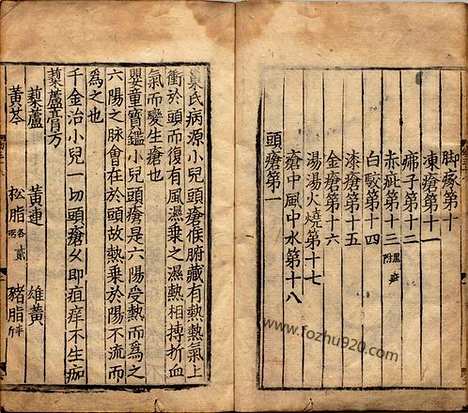 脚瘃第十
凍瘡第十一
疿子第十二
赤疵第十三
附
白駮第十四
漆瘡第十五
金瘡第十六
湯火燒第十七
瘡中風中水第十八
頭瘡第一
巢氏病源小兒頭瘡候腑藏有熱熱氣上
衝於頭而復有風濕乗之濕熱相搏折血
氣而變生瘡也
嬰童寶鑑小兒頭瘡是六陽受熱而爲之
六陽之脉會在於頭故熱乗於陽不流而
爲之也
千金治小兒一切頭瘡久即疽痒不生痂
藜蘆膏方
藜蘆 黃連 雄黃
黃芩 松脂各貳 猪脂半
www.fozhu920.com